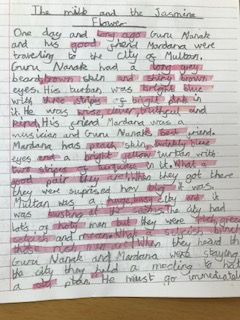 The milk and the Jasmine
Flower
One day and long ago Guru Nanak
and his good friend Mardana were
traveling to the City of Multan.
Guru Nanak had a long grey
beard, brown skin and shiny brown
eyes. His turban was bright blue
with three stripes of bright pink in
it. He was wise, clever, truthful and
kind. His friend Mardana was a
musician and Guru Nanak's best friend.
Mardana has peach skin, bubbly blue
eyes and a bright yellow turban with
two stripes of turquoise in it. What a
good pair they are! When they got there
they were suprised how big it was.
Multan was a huge, busy city and it
was busting at its the city had
lots of holy men but they were rich, greedy
selfish and mean. What a selfish bunch
these rich men are! When they heard that
Guru Nanak and Mardana were staying in
the city they held a meeting to hatch
a plan. He must go immediately